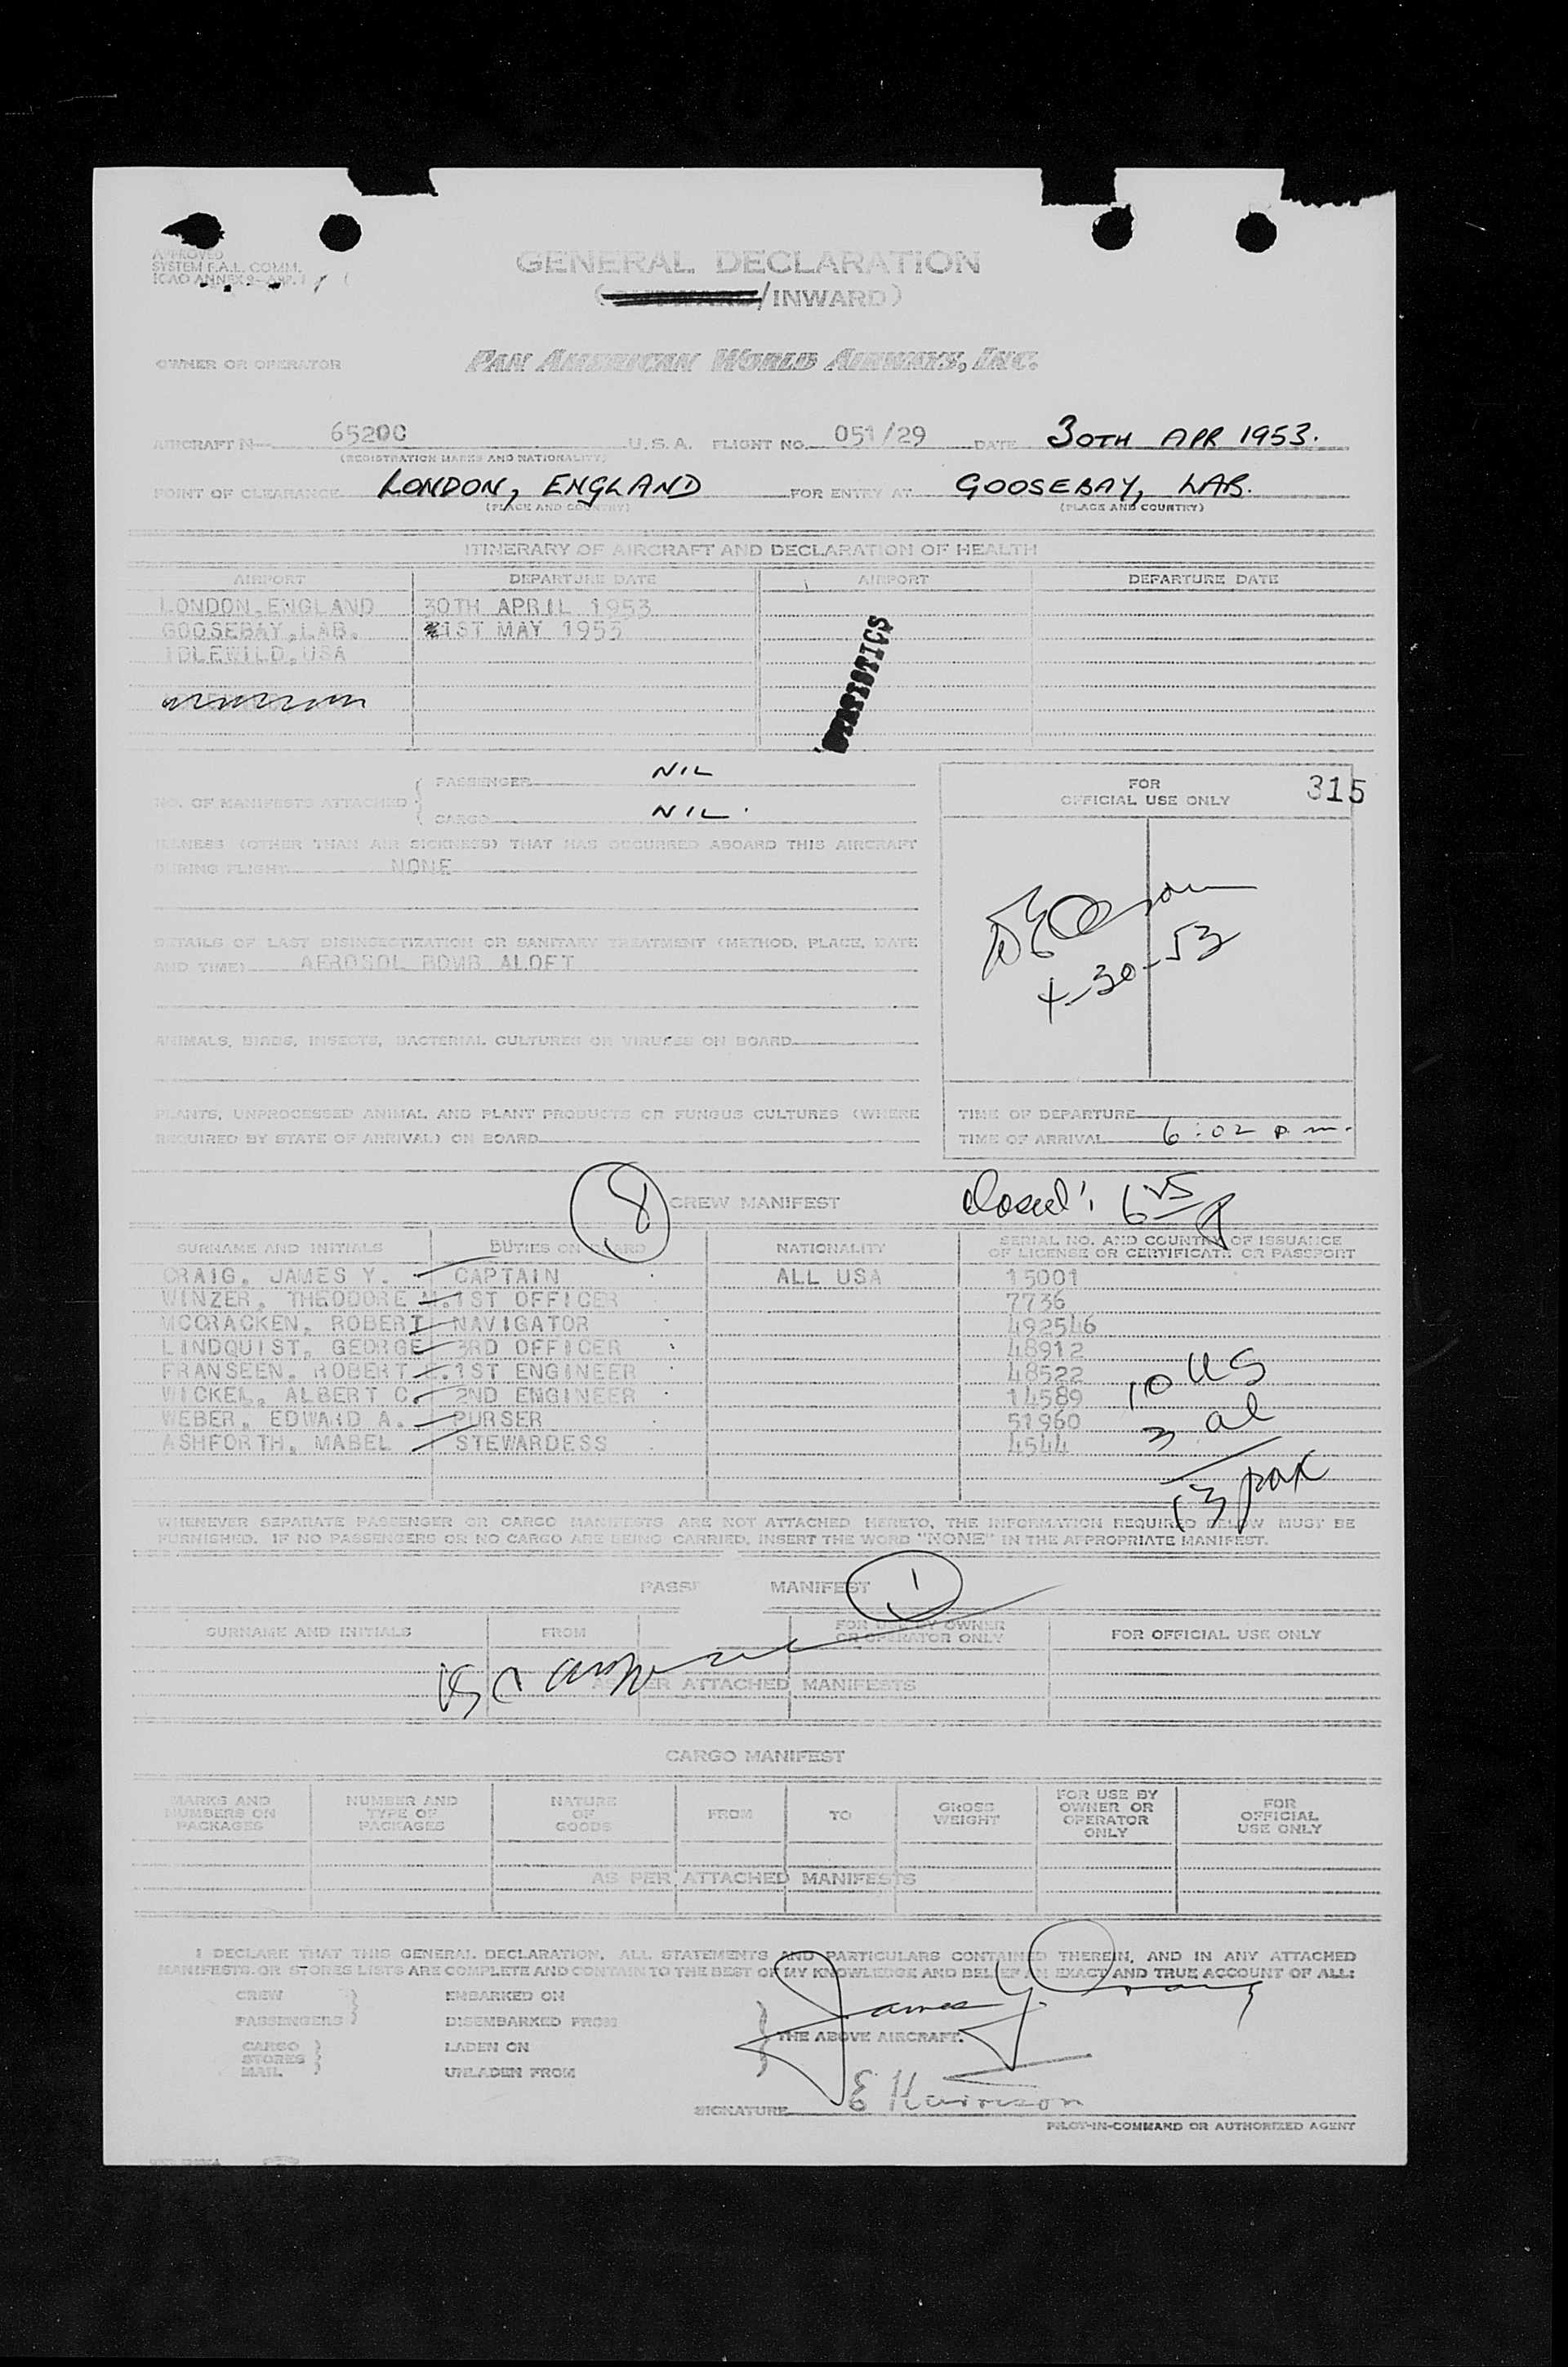 APPROVED
SYSTEM F.A.L. COMM.
ICAO ANNEX 9- APP. 1
GENERAL DECLARATION
(OUTWARD/INWARD)
OWNER OR OPERATOR PAN AMERICAN WORLD AIRWAYS, INC.
AIRCRAFT N— 6520C U.S.A. FLIGHT NO. 051/29 DATE 30TH APR 1953.
(REGISTRATION MARKS AND NATIONALITY)
POINT OF CLEARANCE LONDON, ENGLAND FOR ENTRY AT GOOSEBAY, LAB.
(PLACE AND COUNTRY) (PLACE AND COUNTRY)
ITINERARY OF AIRCRAFT AND DECLARATION OF HEALTH
AIRPORT DEPARTURE DATE AIRPORT DEPARTURE DATE
LONDON,ENGLAND 30TH APRIL 1953
GOOSEBAY,LAB. 1ST MAY 1953
IDLEWILD,USA
STATISTICS
NO. OF MANIFESTS ATTACHED { PASSENGER NIL
CARGO NIL.
FOR OFFICIAL USE ONLY 315
ILLNESS (OTHER THAN AIR SICKNESS) THAT HAS OCCURRED ABOARD THIS AIRCRAFT
DURING FLIGHT NONE
4-30-53
DETAILS OF LAST DISINSECTIZATION OR SANITARY TREATMENT (METHOD, PLACE, DATE
AND TIME) AEROSOL BOMB ALOFT
ANIMALS, BIRDS, INSECTS, BACTERIAL CULTURES OR VIRUSES ON BOARD
PLANTS, UNPROCESSED ANIMAL AND PLANT PRODUCTS OR FUNGUS CULTURES (WHERE
REQUIRED BY STATE OF ARRIVAL) ON BOARD
TIME OF DEPARTURE
TIME OF ARRIVAL 6:02 p.m.
8 CREW MANIFEST closed:
SURNAME AND INITIALS DUTIES ON BOARD NATIONALITY SERIAL NO. AND COUNTRY OF ISSUANCE
OF LICENSE OR CERTIFICATE OR PASSPORT
CRAIG, JAMES Y. CAPTAIN ALL USA 15001
WINZER, THEODORE 1ST OFFICER 7736
MCCRACKEN, ROBERT NAVIGATOR 492546
LINDQUIST, GEORGE 3RD OFFICER 48912
FRANSEEN, ROBERT 1ST ENGINEER 48522
WICKEL, ALBERT C. 2ND ENGINEER 14589
WEBER, EDWARD A. PURSER 51960
ASHFORTH, MABEL STEWARDESS 4544
10 US
3 al
13 pax
WHENEVER SEPARATE PASSENGER OR CARGO MANIFESTS ARE NOT ATTACHED HERETO, THE INFORMATION REQUIRED BELOW MUST BE
FURNISHED. IF NO PASSENGERS OR NO CARGO ARE BEING CARRIED, INSERT THE WORD "NONE" IN THE APPROPRIATE MANIFEST.
PASSE MANIFEST 1
SURNAME AND INITIALS FROM FOR USE BY OWNER
OR OPERATOR ONLY FOR OFFICIAL USE ONLY
AS PER ATTACHED MANIFESTS
CARGO MANIFEST
MARKS AND NUMBERS ON PACKAGES NUMBER AND TYPE OF PACKAGES NATURE OF GOODS FROM TO GROSS WEIGHT FOR USE BY OWNER OR OPERATOR ONLY FOR OFFICIAL USE ONLY
AS PER ATTACHED MANIFESTS
I DECLARE THAT THIS GENERAL DECLARATION, ALL STATEMENTS AND PARTICULARS CONTAINED THEREIN, AND IN ANY ATTACHED
MANIFESTS OR STORES LISTS ARE COMPLETE AND CONTAIN TO THE BEST OF MY KNOWLEDGE AND BELIEF AN EXACT AND TRUE ACCOUNT OF ALL:
CREW EMBARKED ON
PASSENGERS DISEMBARKED FROM
James Y. Craig
THE ABOVE AIRCRAFT.
CARGO LADEN ON
STORES
MAIL UNLADEN FROM
SIGNATURE E Harrison
PILOT-IN-COMMAND OR AUTHORIZED AGENT